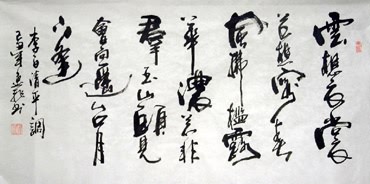 雲想衣裳
花想容春
風拂檻露
華濃若非
羣玉山頭見
會向瑤台月
下逢
李白清平調